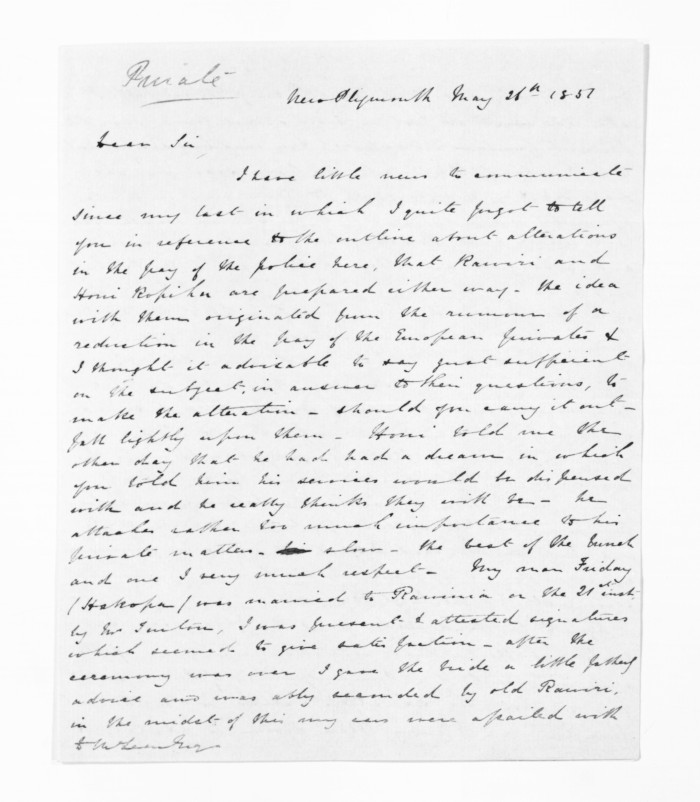 Private
New Plymouth May 26th 1851
Dear Sir,
I have little news to communicate
since my last in which I quite forgot to tell
you in reference to the outline about alterations
in the pay of the police here, that Rawiri and
Honi Ropiha are prepared either way - the idea
with them originated from the rumour of a
reduction in the pay of the European privates &
I thought it advisable to say just sufficient
on the subject, in answer to their questions, to
make the alteration - should you carry it out -
fall lightly upon them - Honi told me the
other day that he had had a dream in which
you told him his services would be dispensed
with and he really thinks they will be - he
attaches rather too much importance to his
private matters - slow - the best of the bunch
and one I very much respect - My man Friday
(Hakopa) was married to Rawinia on the 21st inst.
by Mr Turton, I was present & attested signatures
which seemed to give satisfaction - after the
ceremony was over I gave the bride a little fatherly
advice and was ably seconded by old Rawiri,
in the midst of this my ears were assailed with
D McLean Esq